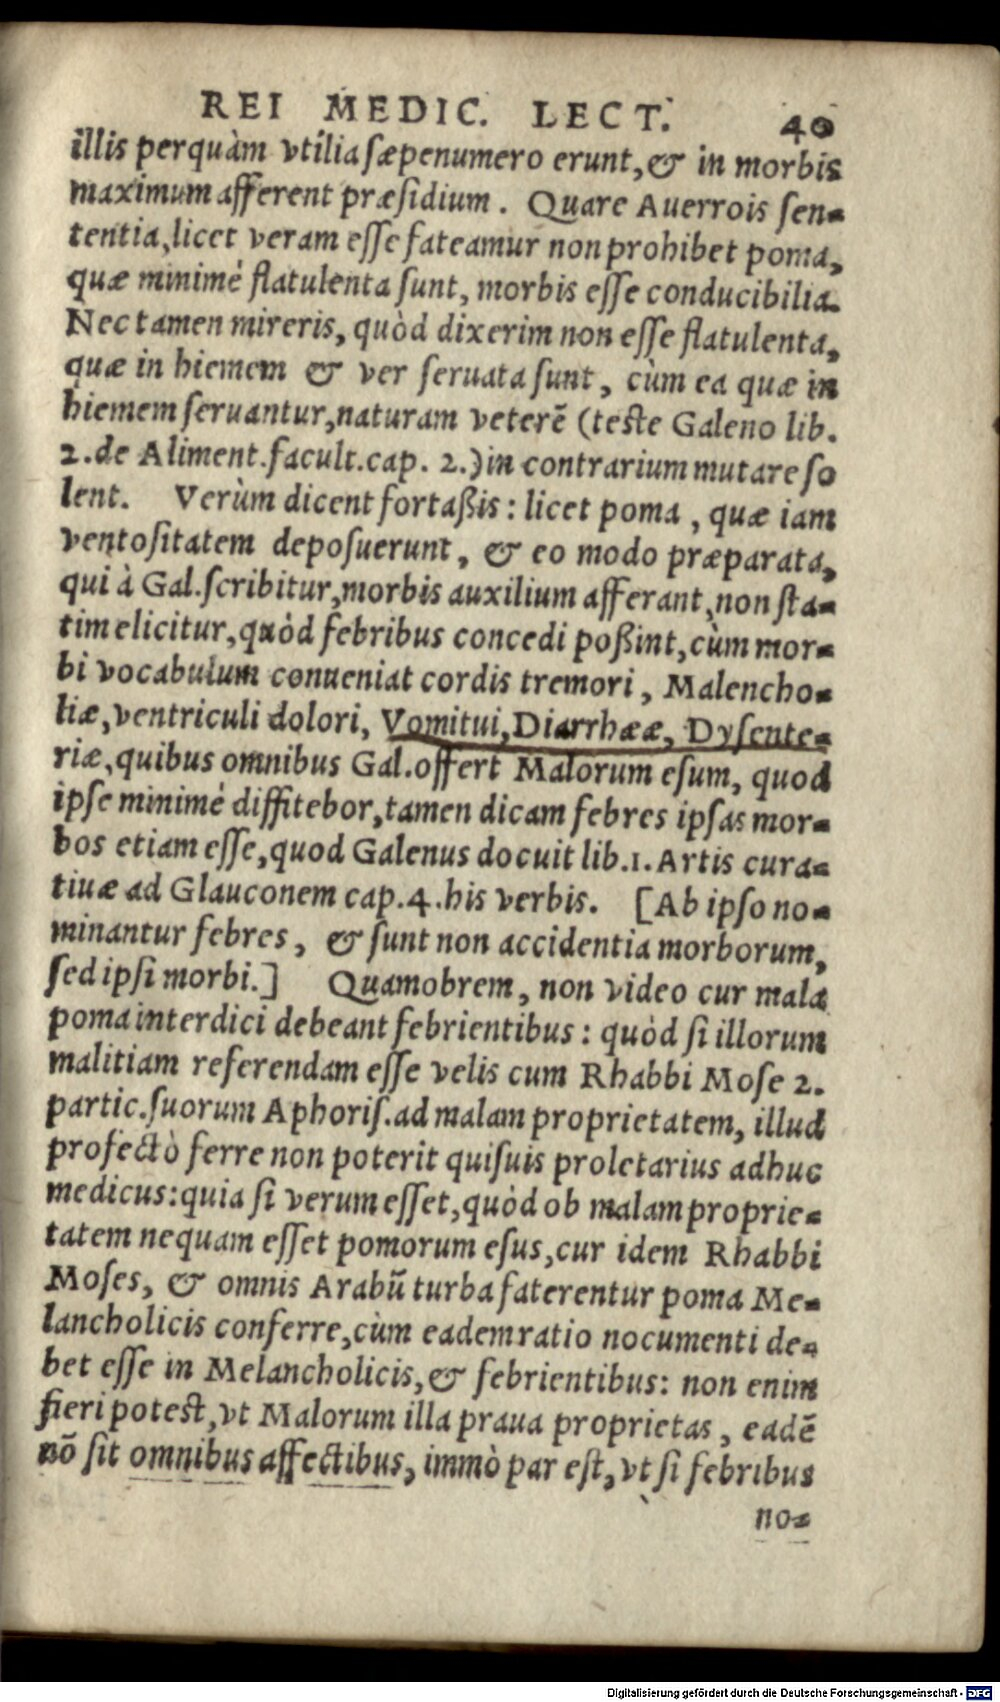 REI MEDIC. LECT. 40
illis perquàm vtilia sæpenumero erunt, & in morbis
maximum afferent præsidium. Quare Auerrois sen-
tentia, licet veram esse fateamur non prohibet poma,
quæ minimè flatulenta sunt, morbis esse conducibilia.
Nec tamen mireris, quòd dixerim non esse flatulenta,
quæ in hiemem & ver seruata sunt, cùm ea quæ in
hiemem seruantur, naturam veterẽ (teste Galeno lib.
2. de Aliment. facult. cap. 2.) in contrarium mutare so
lent. Verùm dicent fortaßis: licet poma, quæ iam
ventositatem deposuerunt, & eo modo præparata,
qui à Gal. scribitur, morbis auxilium afferant, non sta-
tim elicitur, quòd febribus concedi poßint, cùm mor-
bi vocabulum conueniat cordis tremori, Malencho-
liæ, ventriculi dolori, Vomitui, Diarrhææ, Dysente-
riæ, quibus omnibus Gal. offert Malorum esum, quod
ipse minimè diffitebor, tamen dicam febres ipsas mor-
bos etiam esse, quod Galenus docuit lib. 1. Artis cura-
tiuæ ad Glauconem cap. 4. his verbis. [Ab ipso no-
minantur febres, & sunt non accidentia morborum,
sed ipsi morbi.] Quamobrem, non video cur mala
poma interdici debeant febrientibus: quòd si illorum
malitiam referendam esse velis cum Rhabbi Mose 2.
partic. suorum Aphoris. ad malam proprietatem, illud
profectò ferre non poterit quisuis proletarius adhuc
medicus: quia si verum esset, quòd ob malam proprie-
tatem nequam esset pomorum esus, cur idem Rhabbi
Moses, & omnis Arabũ turba faterentur poma Me-
lancholicis conferre, cùm eadem ratio nocumenti de-
bet esse in Melancholicis, & febrientibus: non enim
fieri potest, vt Malorum illa praua proprietas, eadẽ
nõ sit omnibus affectibus, immò par est, vt si febribus
no-
Digitalisierung gefördert durch die Deutsche Forschungsgemeinschaft - DFG